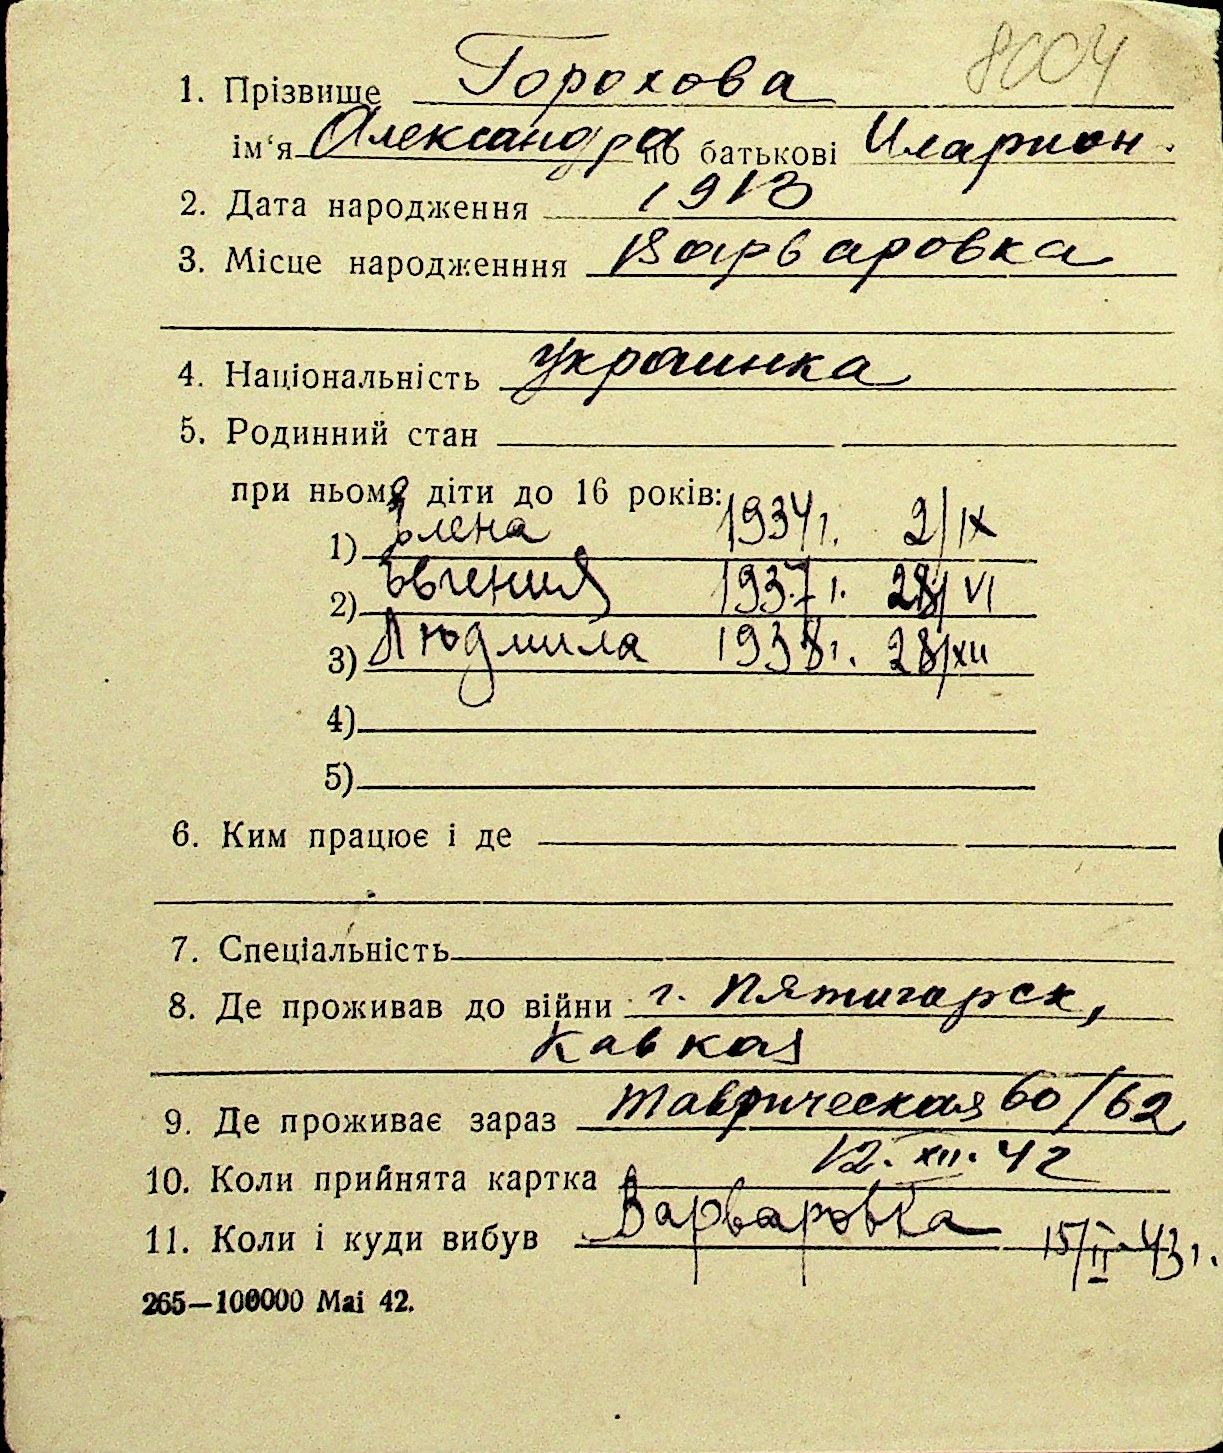 8004
1. Прізвище Горохова
ім'я Александра по батькові Иларион.
2. Дата народження 1913
3. Місце народженння Варваровка
4. Національність украинка
5. Родинний стан
при ньому діти до 16 років:
1) Елена 1934 г. 2/IX
2) Евгения 1937 г. 28/VI
3) Людмила 1938 г. 28/XII
4)
5)
6. Ким працює і де
7. Спеціальність
8. Де проживав до війни г. Пятигорск,
Кавказ
9. Де проживає зараз Таврическая 60/62
10. Коли прийнята картка 12. XII. 42
11. Коли і куди вибув Варваровка 15/II-43 г.
265—100000 Mai 42.